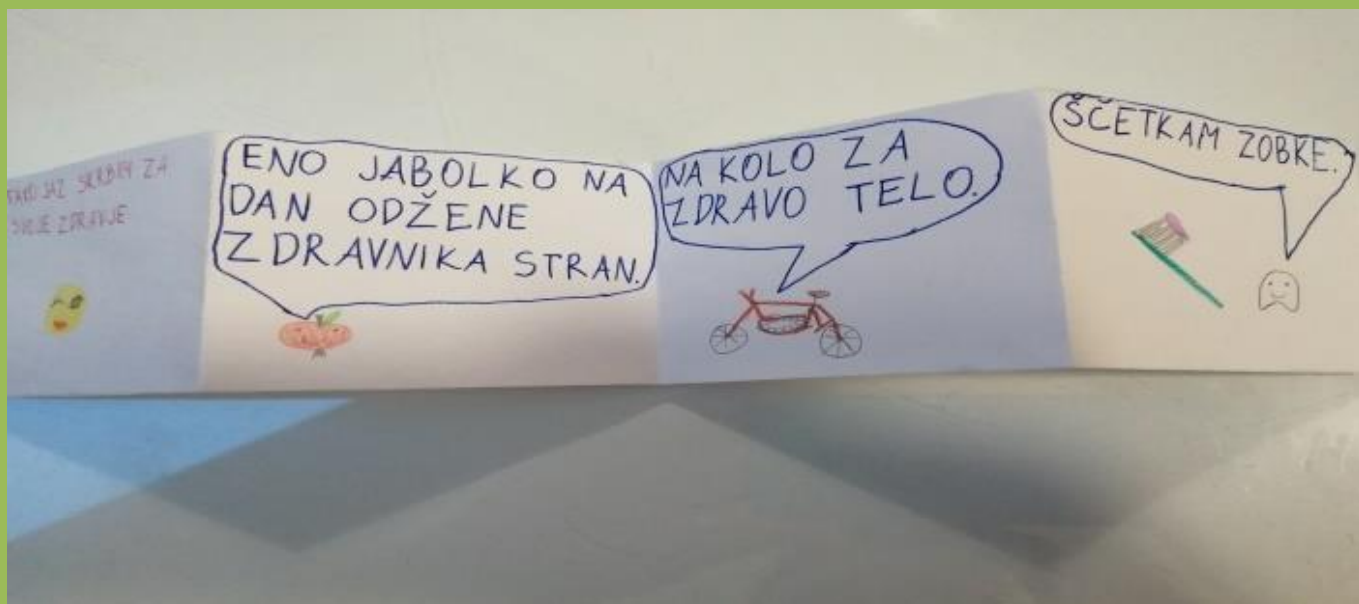 TAKO JAZ SKRBIM ZA
SVOJE ZDRAVJE
ENO JABOLKO NA
DAN ODŽENE
ZDRAVNIKA STRAN.
NA KOLO ZA
ZDRAVO TELO.
ŠČETKAM ZOBKE.